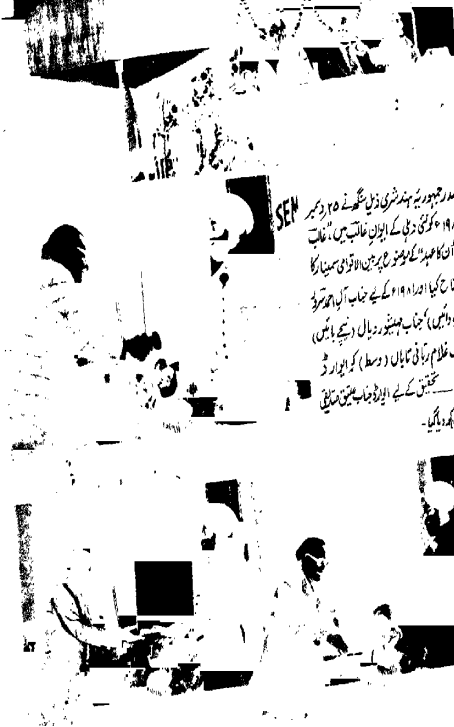 SEM
صدر جمہوریہ ہند شری ذیل سنگھ نے ۲۵ دسمبر
کو نئی دہلی کے ایوانِ غالب میں، "غالب
اُن کا عہد" کے موضوع پر بین الاقوامی سمینار کا
کیا اور ۱۹۸۱ء کے لیے جناب آل احمد سرور
دائیں) جناب مہیشور دیال (نیچے بائیں)
غلام ربانی تاباں (وسط) کو ایوارڈ
تحقیق کے لیے ایوارڈ جناب عتیق صدیقی
دیا گیا۔